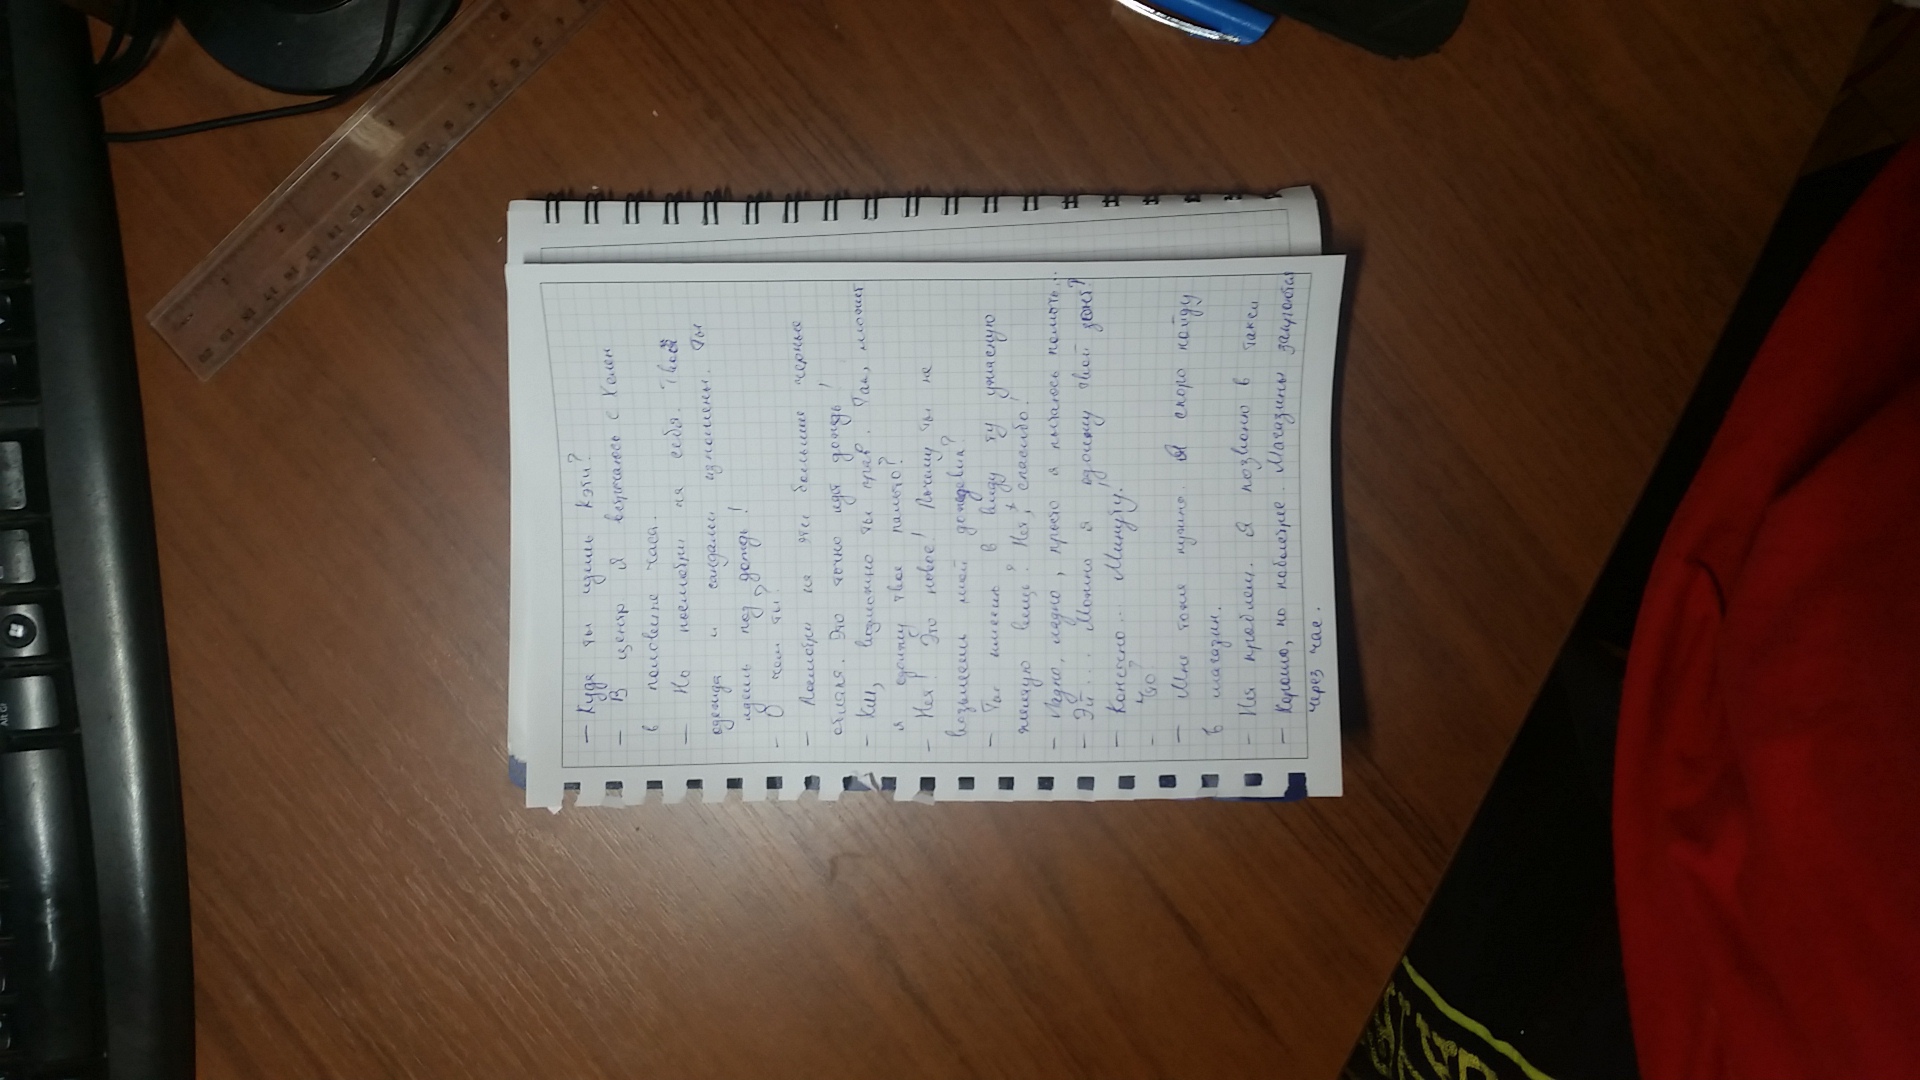 — Куда ты идешь Кэти?
— В центр Я встречаюсь с Хелен
в половине часа.
— Но посмотри на себя. Твоя
одежда и сандали изношены. Ты
идешь под дождь!
- О чем ты?
— Посмотри на эти большие черные
облака. Это точно идет дождь!
- Хм, возможно ты прав. Так, может
я одолжу твое пальто?
- Нет! Это новое! Почему ты не
возьмешь мой дождевик?
— Ты имеешь в виду ту ужасную
желтую вещь? Нет, спасибо!
- Ладно, ладно, просто я пытаюсь помочь...
- Эй... Можно я одолжу твой зонт?
- Конечно... Минуту.
- Что?
— Мне тоже нужно. Я скоро пойду
в магазин.
- Нет проблем. Я позвоню в такси
— Хорошо, но поболстрее. Магазины закрываются
через час.
Alt Gr